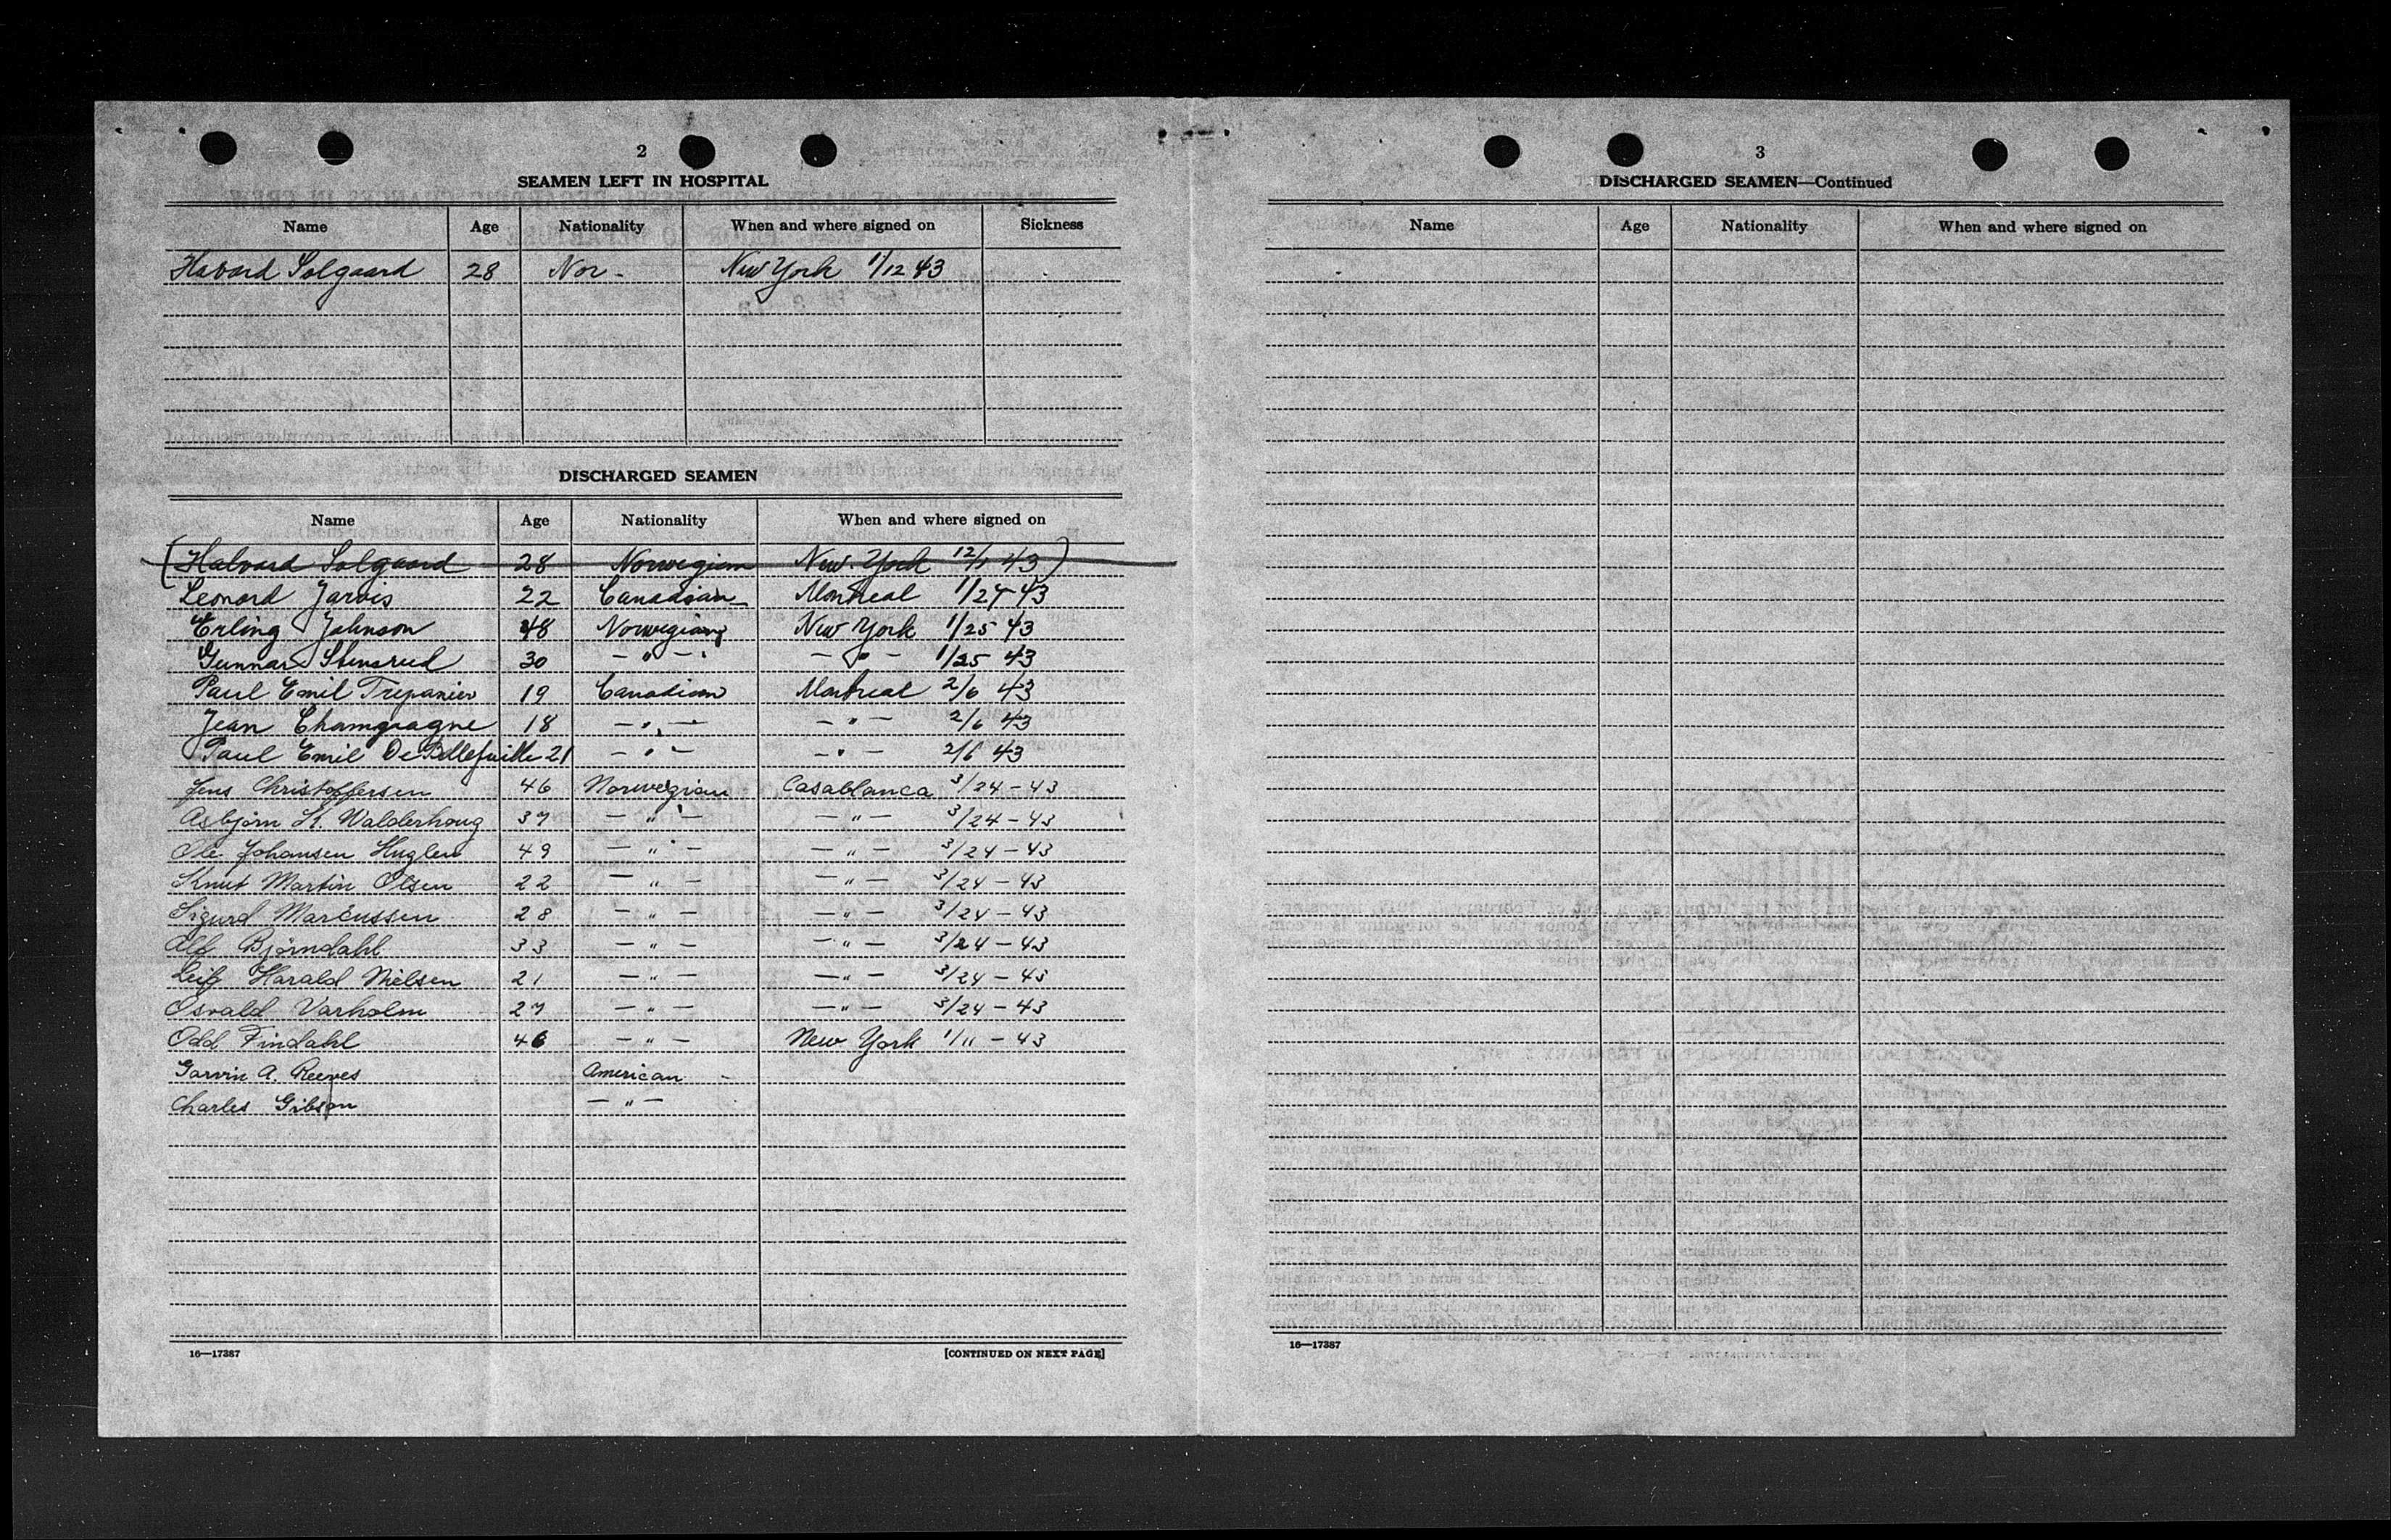 2
SEAMEN LEFT IN HOSPITAL
Name Age Nationality When and where signed on Sickness
Havard Solgaard 28 Nor- New York 1/12 43
DISCHARGED SEAMEN
Name Age Nationality When and where signed on
(Halvard Solgaard 28 Norwegian New York 12/1 43)
Leonard Jarvis 22 Canadian Montreal 1/27-43
Erling Johnson 48 Norwegian New York 1/25 43
Gunnar Stensrud 30 — " — — " — 1/25 43
Paul Emil Trepanier 19 Canadian Montreal 2/6 43
Jean Champagne 18 — " — — " — 2/6 43
Paul Emil 21 — " — — " — 2/6 43
Jens Christoffersen 46 Norwegian Casablanca 3/24-43
Asbjørn St. Walderhoug 37 — " — — " — 3/24-43
Ole Johansen Huglen 49 — " — — " — 3/24-43
Knut Martin Olsen 22 — " — — " — 3/24-43
Sigurd Marcussen 28 — " — — " — 3/24-43
Alf Bjørndahl 33 — " — — " — 3/24-43
Leif Harald Nielsen 21 — " — — " — 3/24-43
Osvald Varholm 27 — " — — " — 3/24-43
Odd Findahl 46 — " — New York 1/11-43
Garvin A. Reeves American -
Charles Gibson — " —
16—17387 [CONTINUED ON NEXT PAGE]
3
DISCHARGED SEAMEN—Continued
Name Age Nationality When and where signed on
16—17387